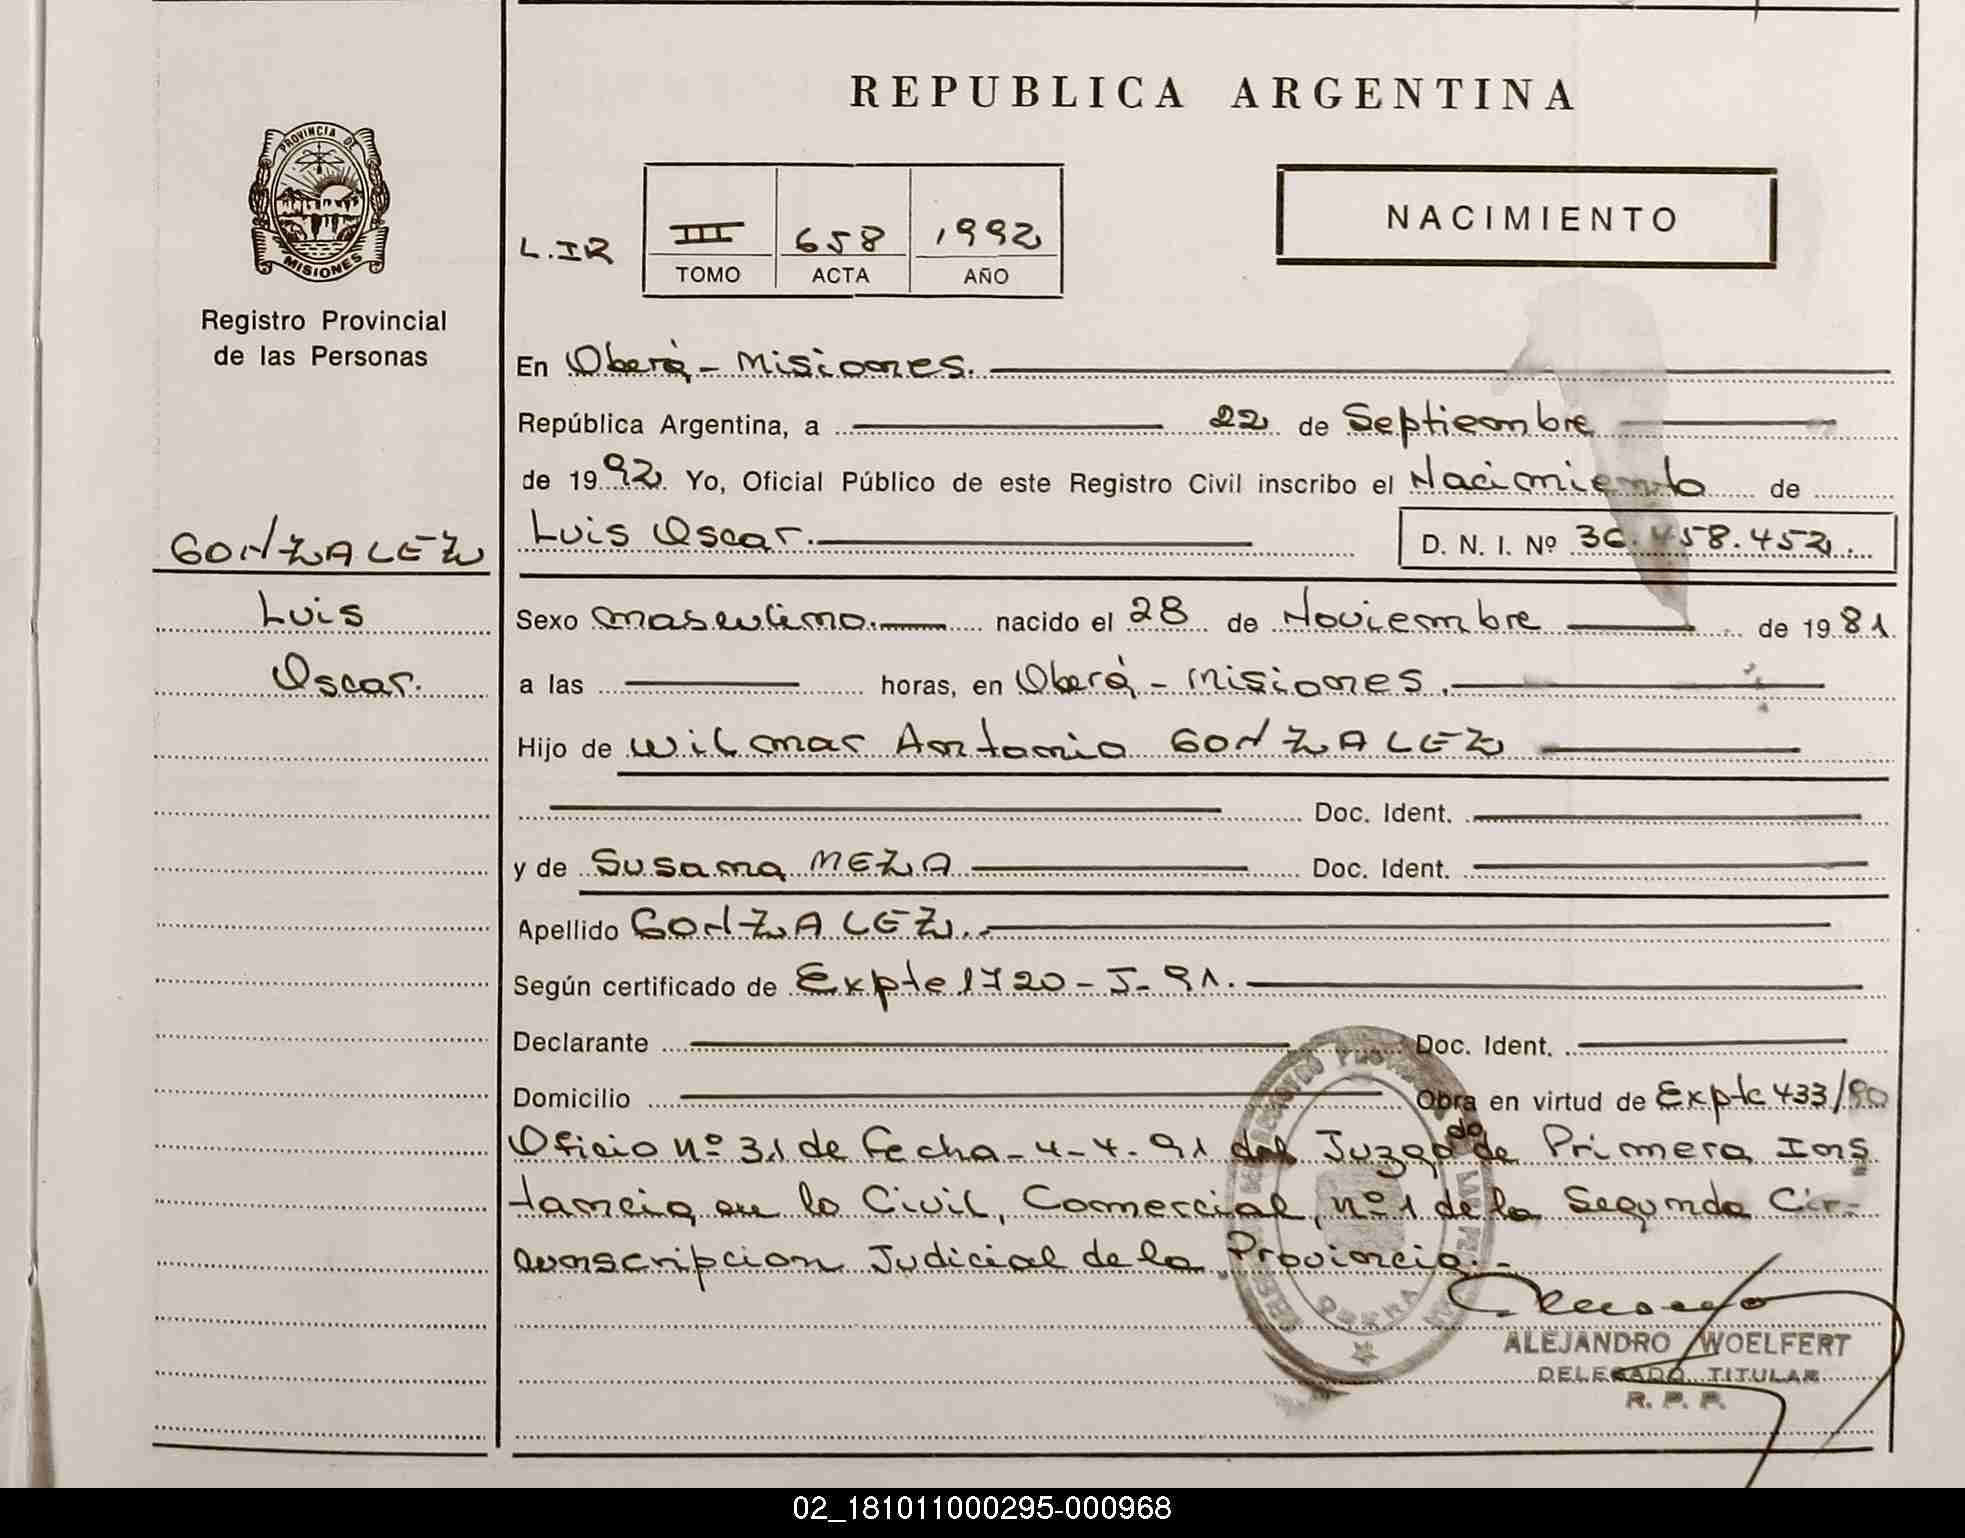 REPUBLICA ARGENTINA
PROVINCIA DE
MISIONES
Registro Provincial
de las Personas
L.IR
III 658 1992
TOMO ACTA AÑO
NACIMIENTO
En Oberá - Misiones.
República Argentina, a 22 de Septiembre
de 1992. Yo, Oficial Público de este Registro Civil inscribo el Nacimiento de
GONZALEZ
Luis Oscar.
Luis Oscar. D. N. I. Nº 36.458.452.
Sexo masculino. nacido el 28 de Noviembre de 1981
a las horas, en Oberá - Misiones.
Hijo de Wilmar Antonio GONZALEZ
Doc. Ident.
y de Susana MEZA Doc. Ident.
Apellido GONZALEZ.
Según certificado de Expte 1720 - J - 91.
Declarante Doc. Ident.
Domicilio Obra en virtud de Expte 433/90
Oficio nº 31 de fecha - 4 - 4 - 91 del Juzgado de Primera Ins
tancia en lo Civil, Comercial, nº 1 de la Segunda Cir-
cunscripcion Judicial de la Provincia. -
OBERA
ALEJANDRO WOELFERT
DELEGADO TITULAR
R. P. P.
02_181011000295-000968